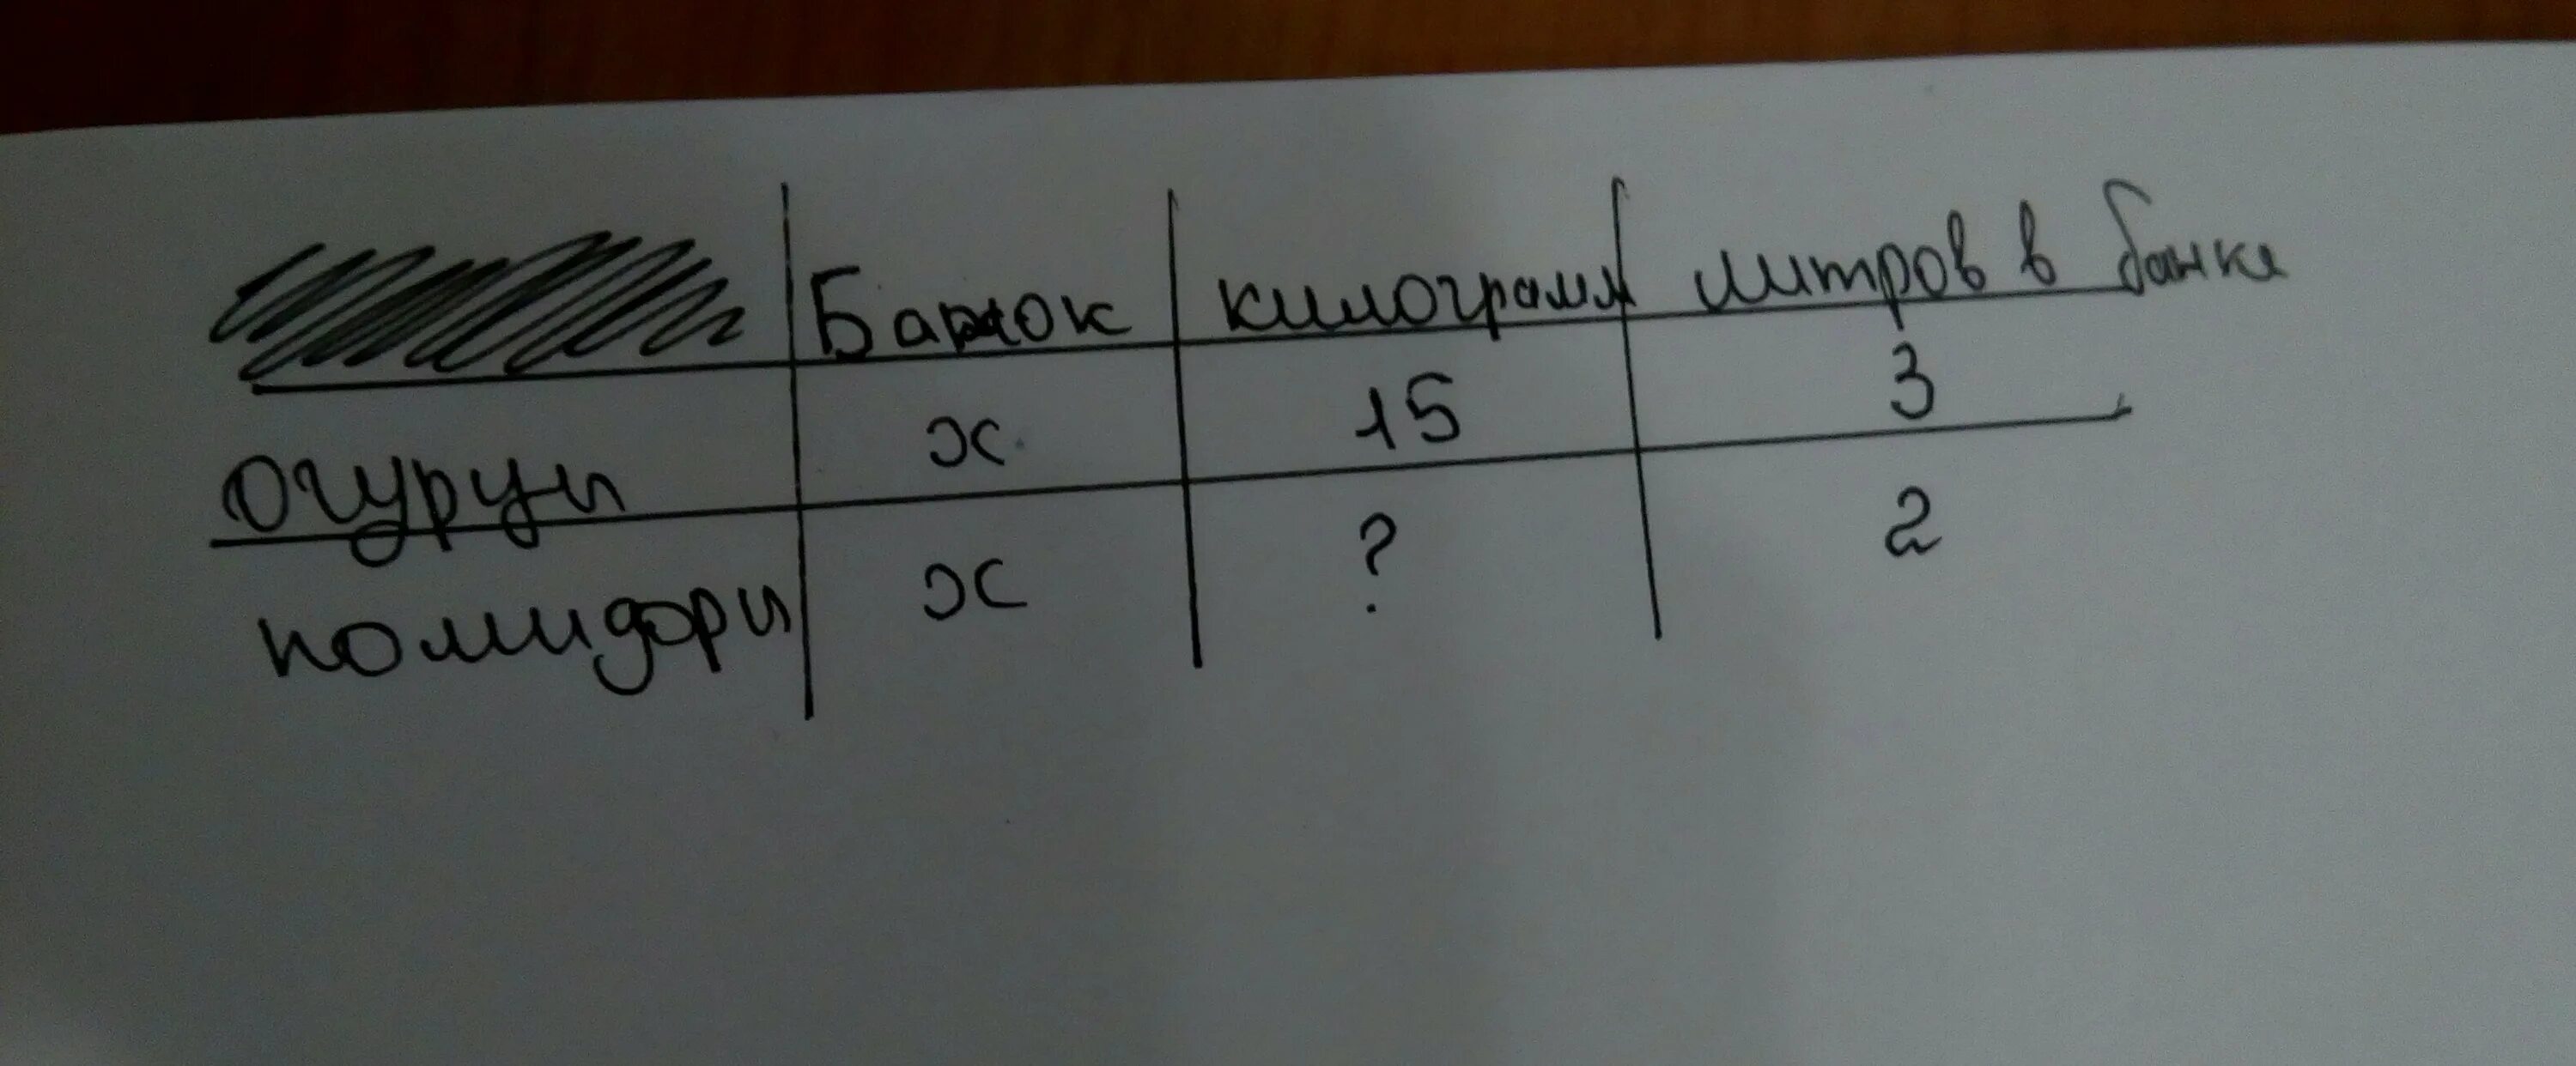 Банок килограмм литров в банке
огурцы х 15 3
помидоры х ? 2